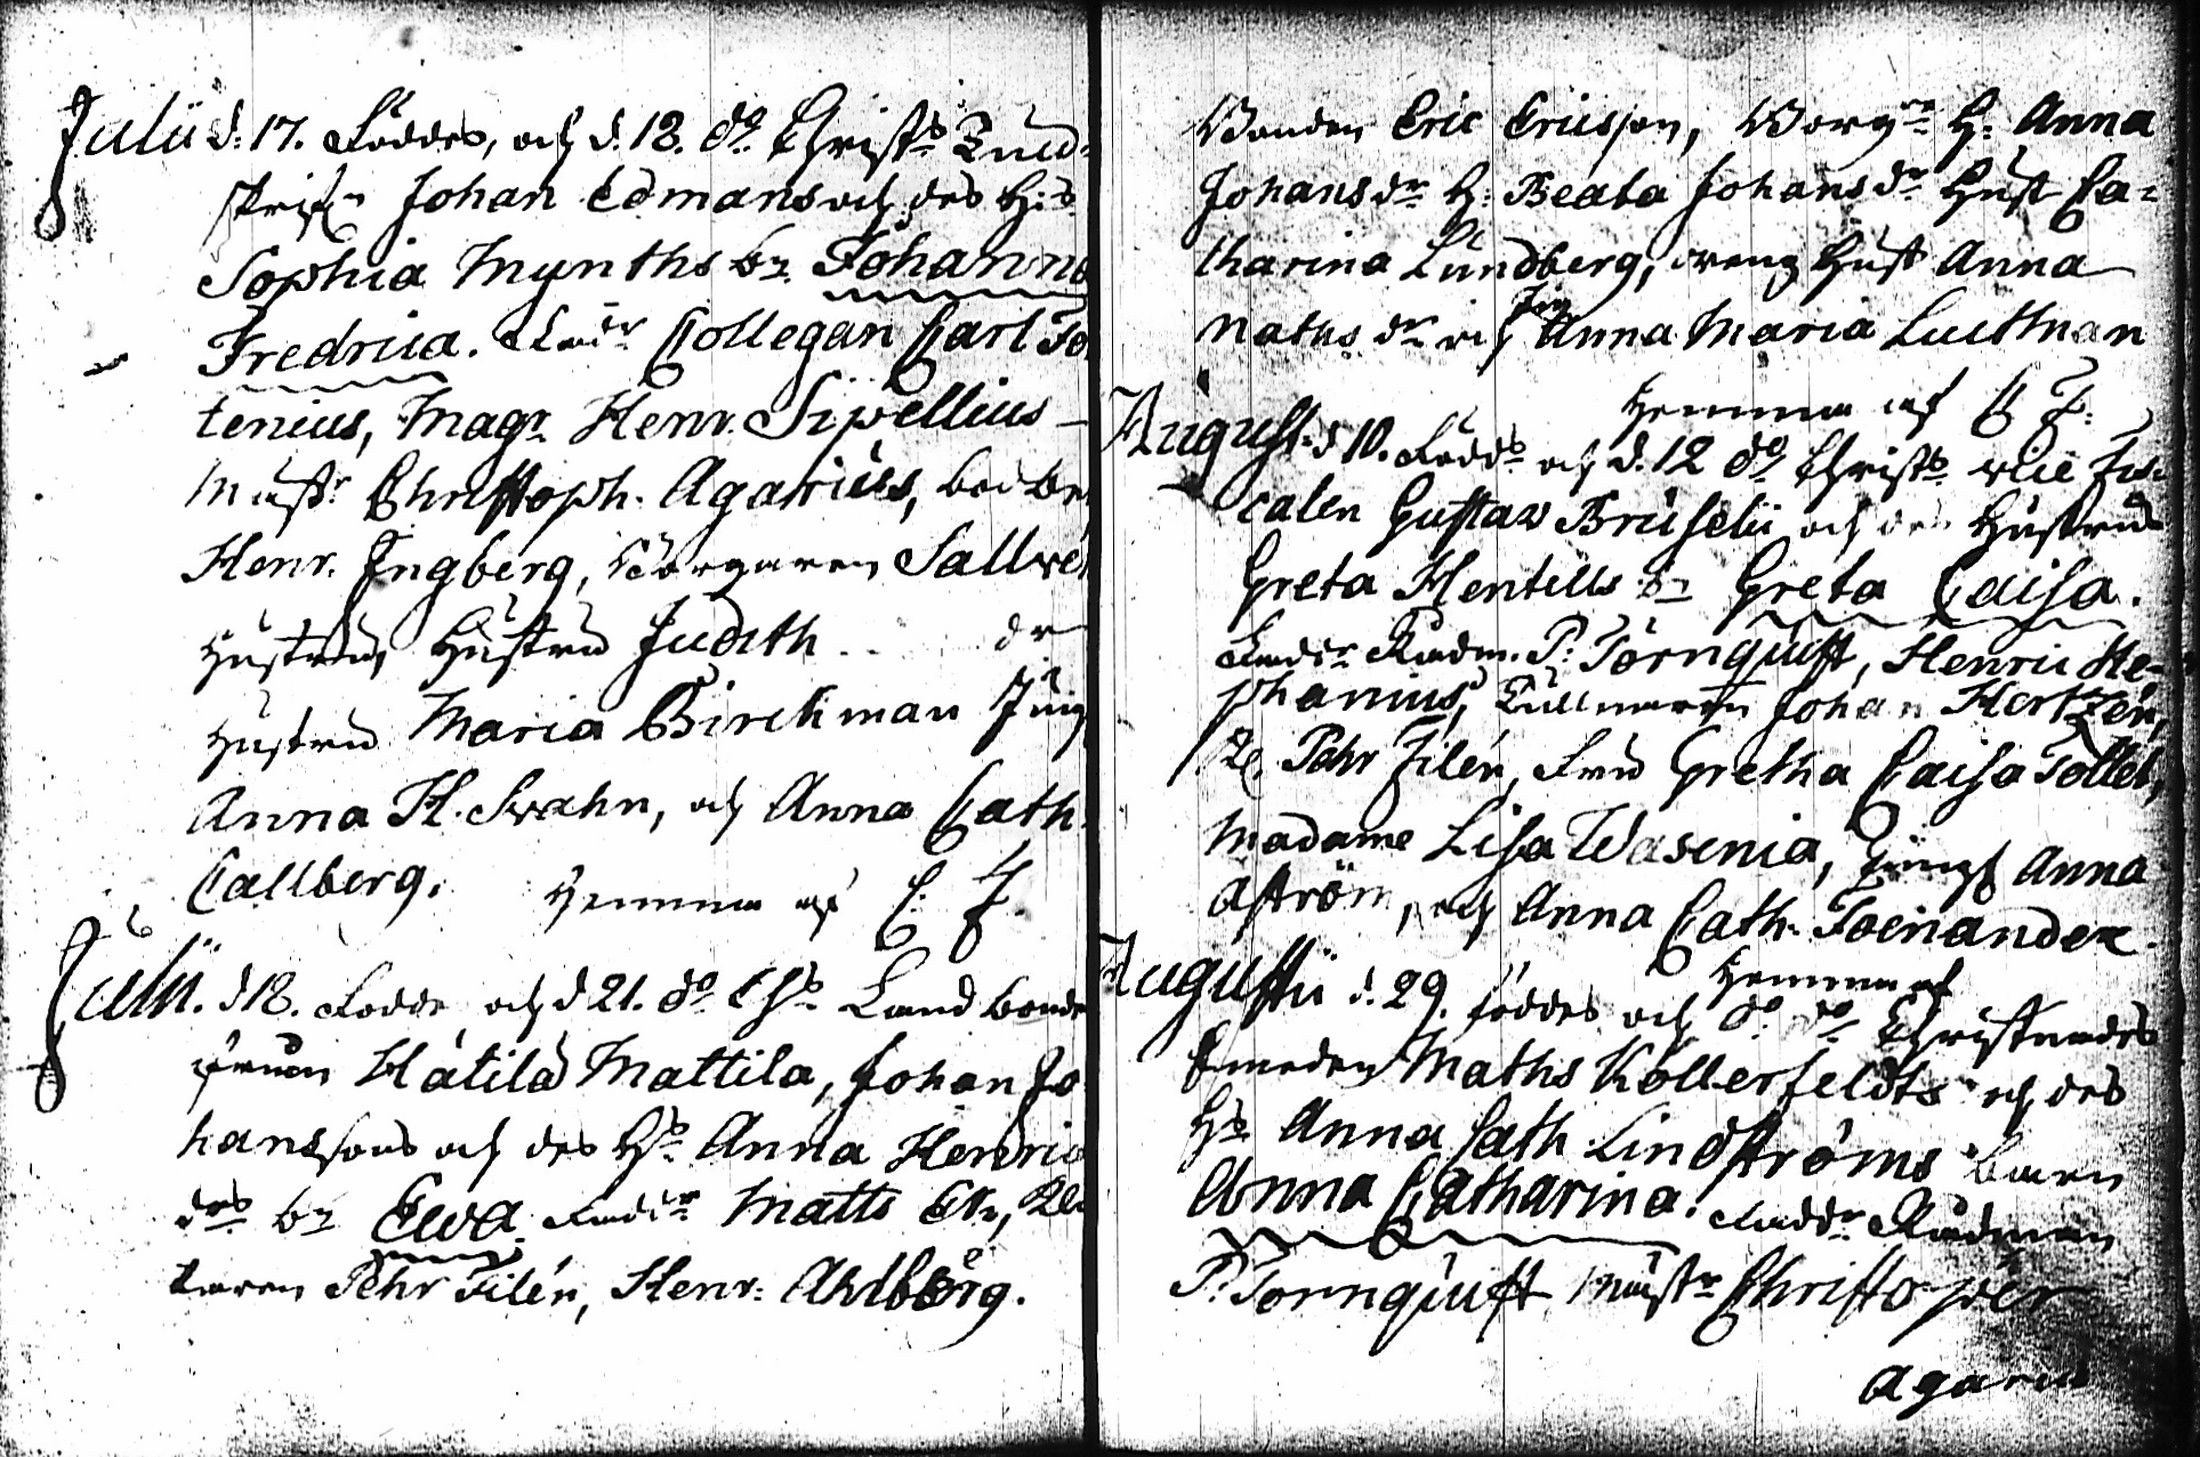 Julii d. 17. Föddes, och d. 18. do Christs Lund-
Johan Edmans och des Hs
Sophia Mynths bn Johanna
Fredrica. Faddr Collegan Carl Fo
tenius, Magr Henr. Sipellius
Mästr Christoph. Agarius,
Henr. Ingberg, Borgaren Sallwe
Hustru, Hustru Judith .. dr
Hustru Maria Birckman Jung
Anna H. Swahn, och Anna Cath.
Callberg. Hemma af C. F.
Julii. d 18. Födde och d 21. do Chs Land bonde
från Hatila Mattila, Johan Jo
hanssons och des Hs Anna Henrics
drs bn Ewa. Faddr Matts Ek,
Pehr Filén, Henr. Ahlberg.
Bonden Eric Ericsson, Borgrn H. Anna
Johansdr H. Beata Johansdr Hust Ca=
tharina Lundberg, dreng Hust Anna
Mathsdr och Jgn Anna Maria Lucthnan
Hemma af C F.
August. d 10. Födds och d. 12 do Christs Fis
calen Gustaw Bruselii och des Hustrus
Greta Hentells bn Greta Caisa.
Faddr Rådm. P. Törnquist, Henric Ste-
phanius, Tullnären Johan Hertzén,
Pehr Filén, Fru Gretha Caisa Tollet,
Madame Lisa Wasenia, Jungf Anna
Åström, och Anna Cath. Toenander.
Hemma af
Augustii d. 29. föddes och do do Christnades
Smeden Maths Köllerfeldts och des
Hs Anna Cath. Lindströms barn
Anna Catharina. Faddr Rådman
P. Törnquist, Mästr Christopher
Agarius